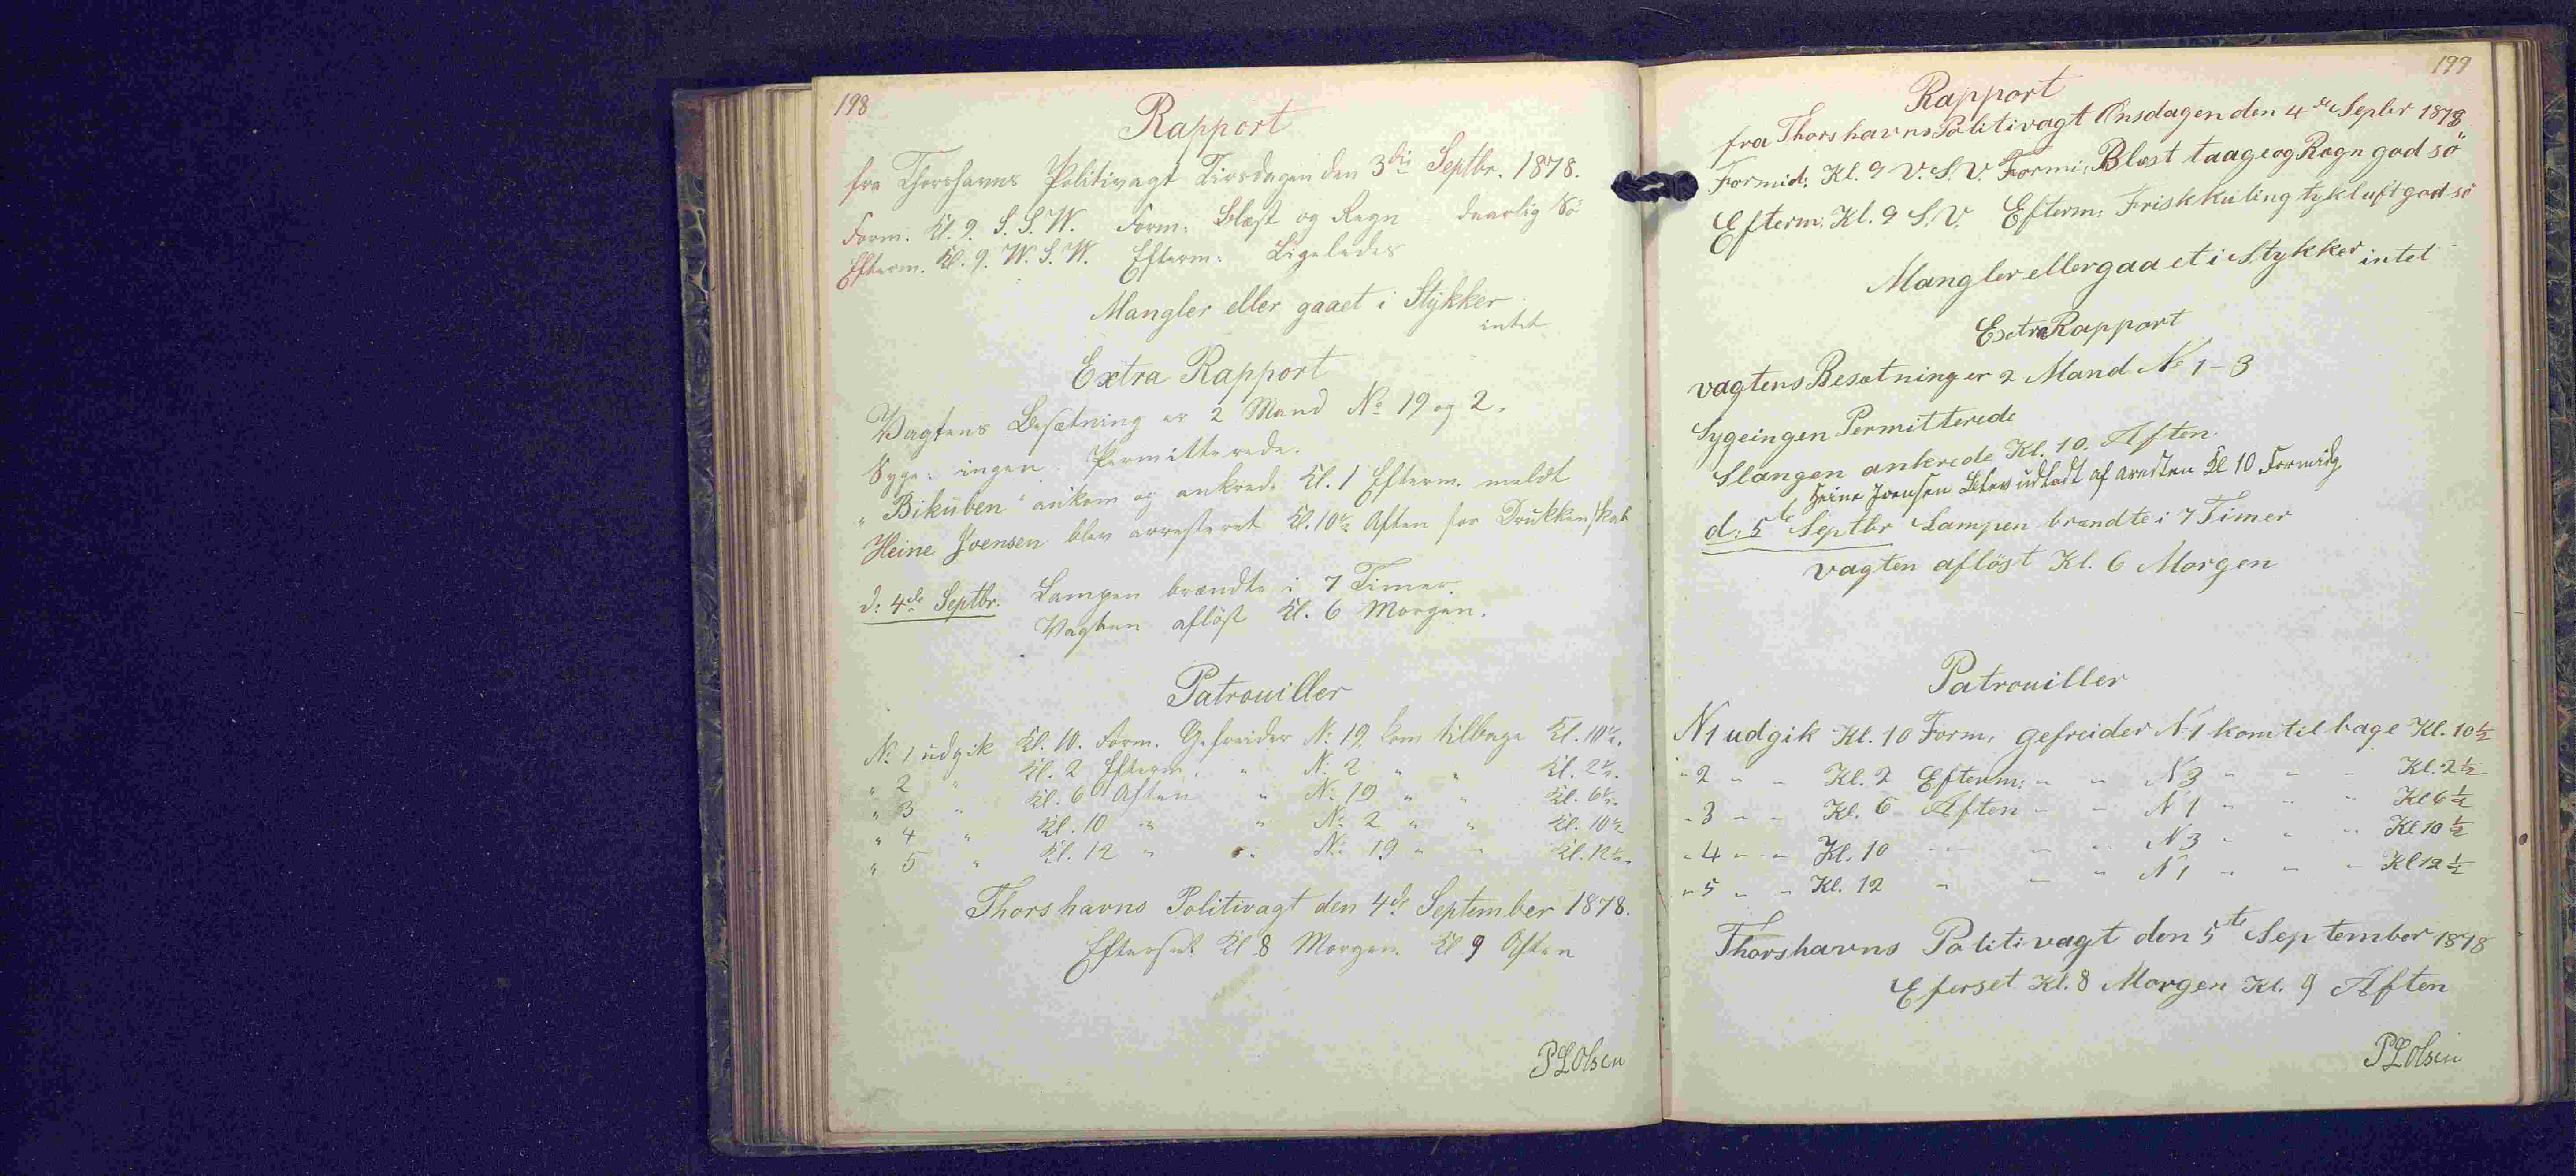 198
Rapport
fra Thorshavns Politivagt Tirsdagen den 3die Septbr. 1878.
Form. Kl. 9. S. S. W. Form: Blæst og Regn - daarlig Sö
Efterm. Kl. 9. W. S. W. Efterm: Ligeledes
Mangler eller gaaet i Stykker
intet
Extra Rapport
Vagtens Besætning er 2 Mand No 19 og 2.
Syge: ingen. Permitterede.
"Bikuben" ankom og ankrede Kl. 1 Efterm. meldt
Heine Joensen blev arresteret Kl. 10½ Aften for Drukkenskab
d: 4de Septbr. Lampen brændte i 7 Timer.
Vagten aflöst Kl. 6 Morgen.
Patrouiller
No 1 udgik Kl. 10. Form. Gefreider No 19 kom tilbage Kl. 10½.
" 2 " Kl. 2 Efterm. " No 2 " " Kl. 2½.
" 3 " Kl. 6 Aften " No 19 " " Kl. 6½.
" 4 " Kl. 10 " " No 2 " " Kl. 10½
" 5 " Kl. 12 " " No 19 " " Kl. 12½.
Thorshavns Politivagt den 4de September 1878.
Efterset Kl 8 Morgen. Kl 9 Aften
P L Olsen
199
Rapport
fra Thorshavns Politivagt Onsdagen den 4de Septbr 1878
Formid: Kl. 9 V. S. V. Formi: Blæst taage og Regn god sö
Efterm: Kl. 9 S. V. Efterm: Frisk kuling tykluft god sö
Mangler eller gaaet i Stykker intet
Exstra Rapport
vagtens Besætning er 2 Mand No 1-3
Syge ingen Permitterede
Slangen ankrede Kl. 10. Aften.
Heine Joensen Blev udladt af aresten Kl 10 Formidg
d: 5te Septbr Lampen brændte i 7 Timer
vagten aflöst Kl. 6 Morgen
Patrouiller
N 1 udgik Kl. 10 Form: gefreider N 1 kom tilbage Kl. 10½
" 2 " " Kl. 2 Efterm: " " N 3 " " " Kl. 2½
" 3 " " Kl. 6 Aften " " N 1 " " " Kl 6½
" 4 " " Kl. 10 " " " N 3 " " " Kl 10½
" 5 " " Kl. 12 " " " N 1 " " " Kl 12½
Thorshavns Politivagt den 5te September 1878
Eferset Kl. 8 Morgen Kl. 9 Aften
P L Olsen